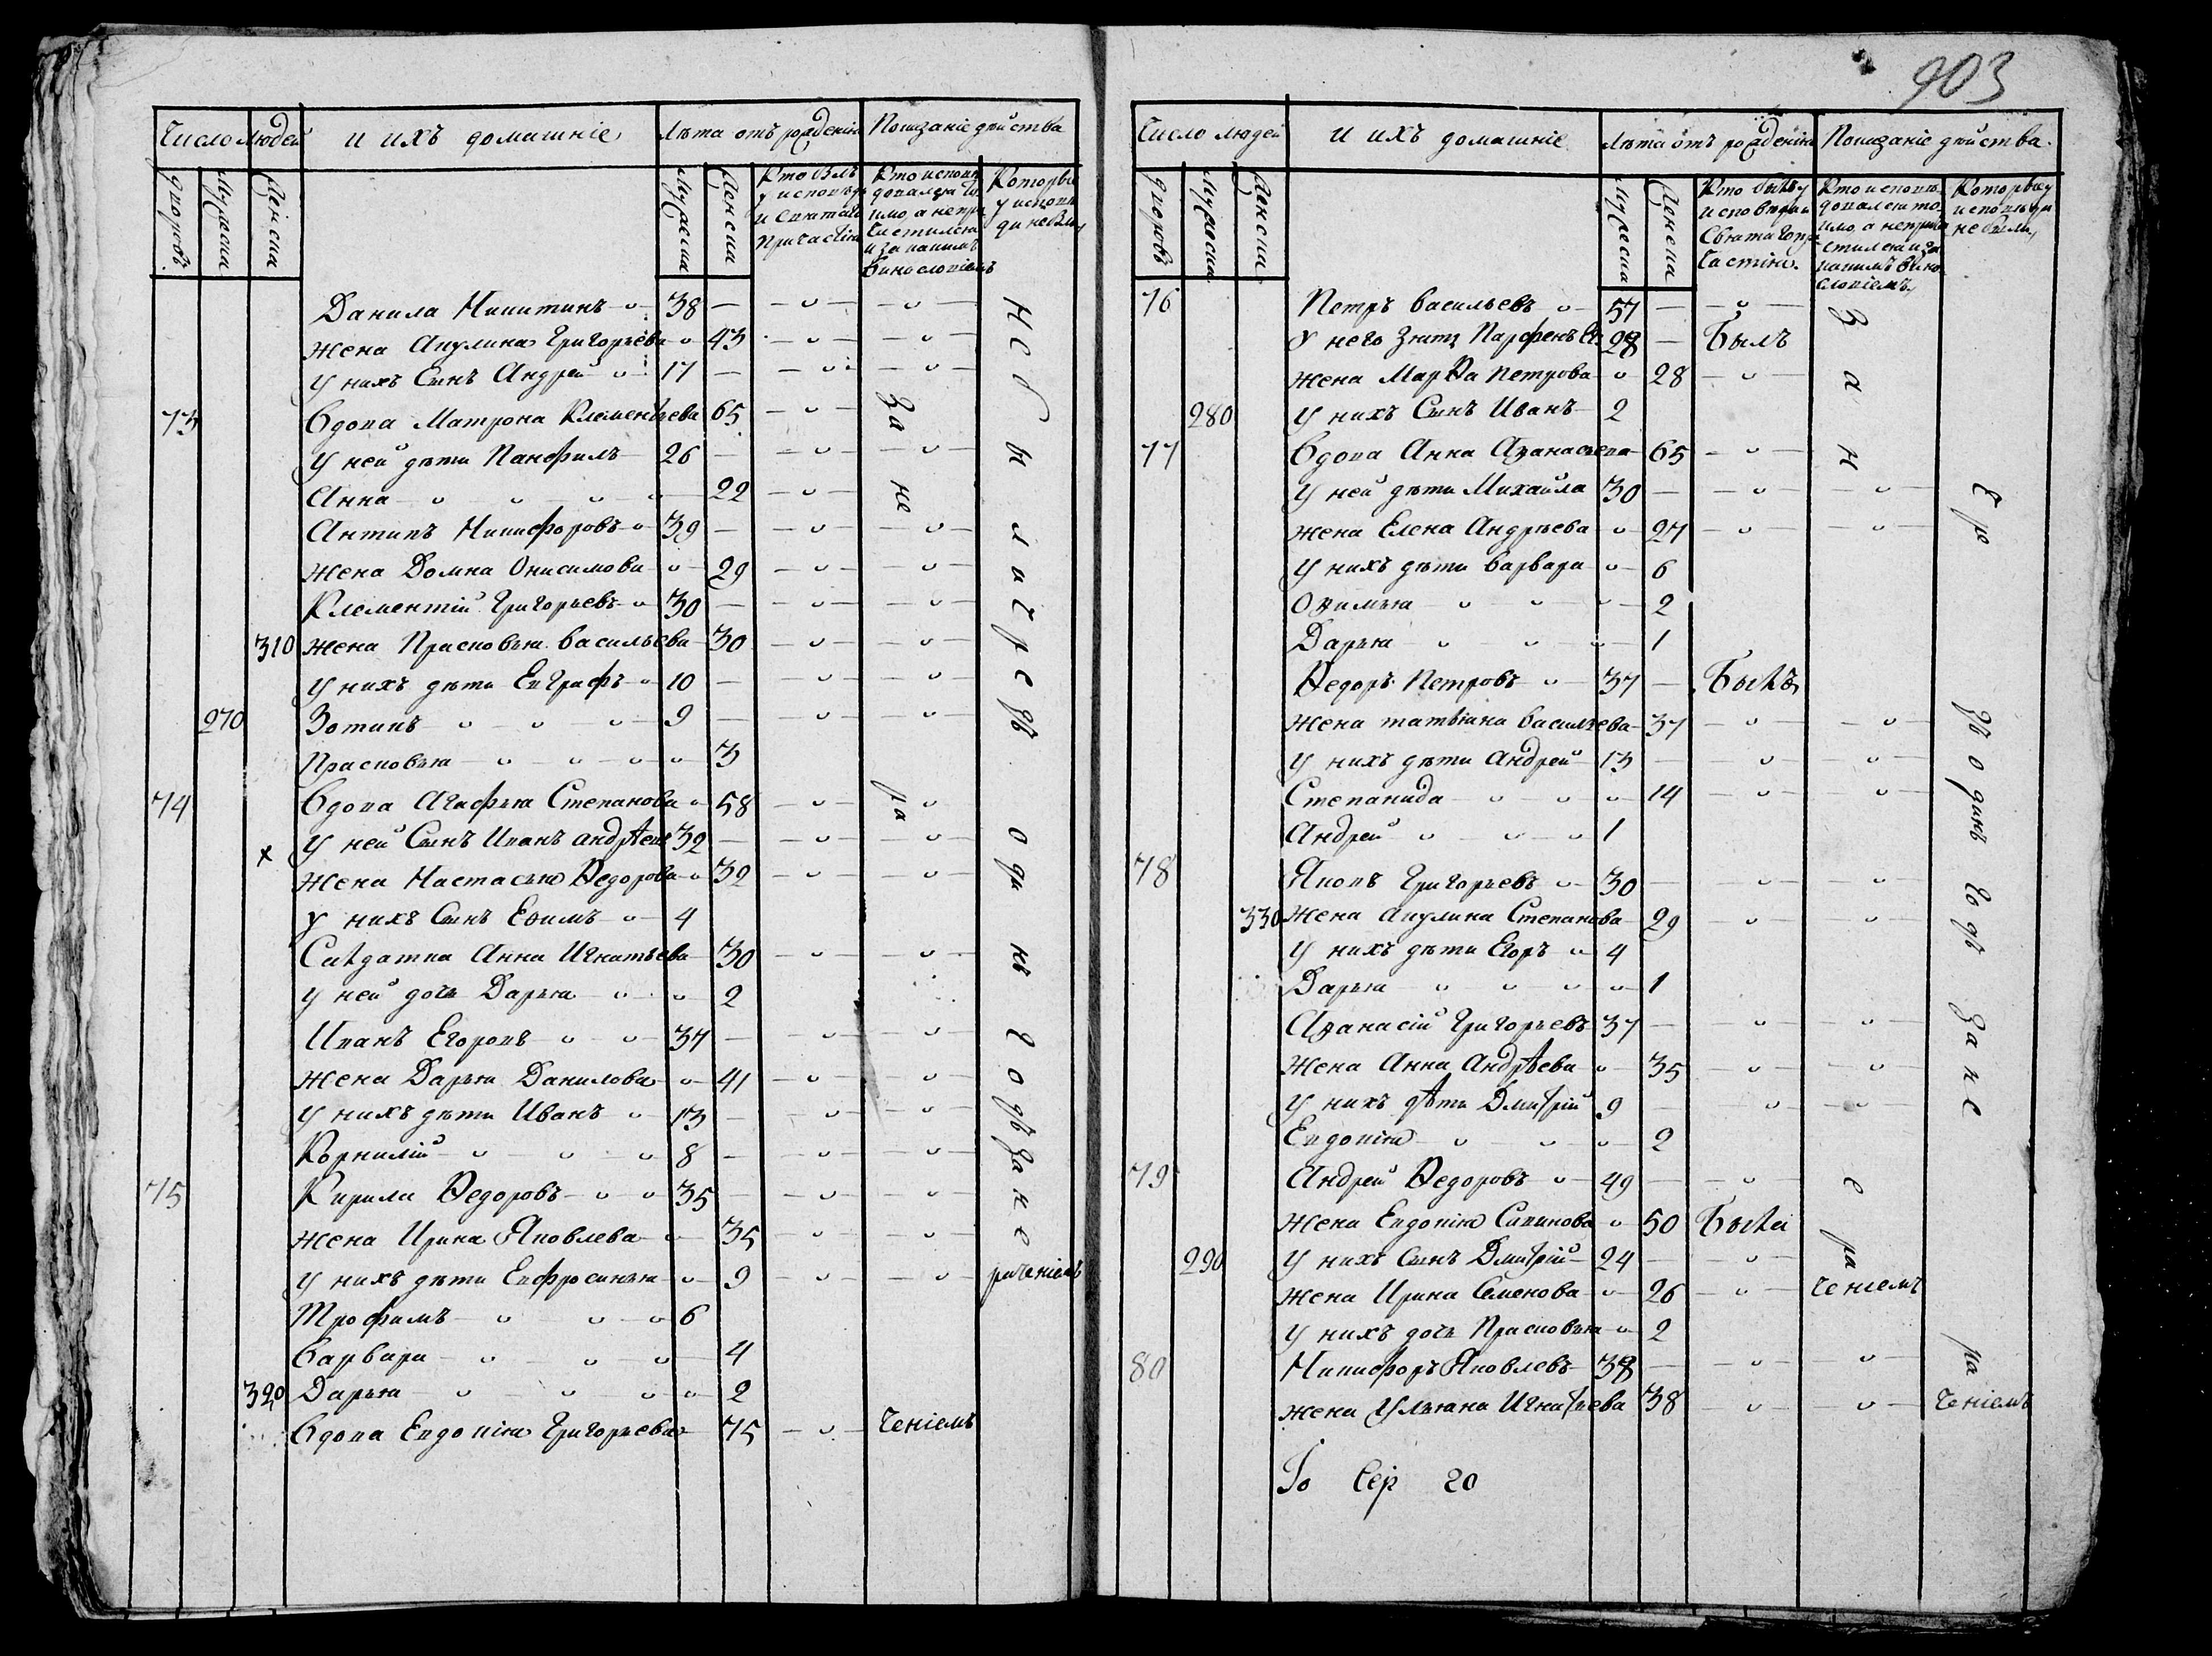 903
Число людей и ихъ домашніе Лѣта отъ рожденія Показаніе дѣйства
дворовъ Мужеска Женска Мужеска Женска Кто былъ у исповѣди и святаго причастія Кто исповѣдовался токмо, а не причастился и за какимъ винословіемъ Которые у исповѣди не были
Данила Никитинъ 38
Жена Акулина Григорьева 43
У нихъ Сынъ Андрей 17
73 Вдова Матрона Клементьева 65
У ней дѣти Панфилъ 26
Анна 22
Антипъ Никифоровъ 39
Жена Домна Онисимова 29
Клементій Григорьевъ 30
310 Жена Прасковья Васильева 30
У нихъ дѣти Евграфъ 10
270 Зотикъ 9
Прасковья 3
74 Вдова Агафья Степанова 58
У ней Сынъ Иванъ Андрѣевъ 32
х Жена Настасья Ѳедорова 32
У нихъ Сынъ Ефимъ 4
Салдатка Анна Игнатьева 30
У ней дочь Дарья 2
Иванъ Егоровъ 37
Жена Дарья Данилова 41
У нихъ дѣти Иванъ 13
Корнилій 8
75 Кирила Ѳедоровъ 35
Жена Ирина Яковлева 35
У нихъ дѣти Евфросинья 9
Трофимъ 6
Варвара 4
320 Дарья 2
Вдова Евдокія Григорьева 75
За не ра ченіемъ
Не были чрезъ одинъ годъ за нераченіемъ
Число людей и ихъ домашніе Лѣта отъ рожденія Показаніе дѣйства
дворовъ Мужеска Женска Мужеска Женска Кто былъ у исповѣди и Святаго причастія. Кто исповѣдовался токмо, а не причастился и за какимъ винословіемъ Которые у исповѣди не были
76 Петръ Васильевъ 57
У него Зять Парфенъ 28 Былъ
Жена Марѳа Петрова 28
280 У нихъ Сынъ Иванъ 2
77 Вдова Анна Аѳанасьева 65
У ней дѣти Михайла 30
Жена Елена Андрѣева 27
У нихъ дѣти Варвара 6
Ѳимья 2
Дарья 1
Ѳедоръ Петровъ 37 Былъ
Жена татьiана Васильева 37
У нихъ дѣти Андрей 13
Степанида 14
Андрей 1
78 Яковъ Григорьевъ 30
330 Жена Акулина Степанова 29
У нихъ дѣти Егоръ 4
Дарья 1
Аѳанасій Григорьевъ 37
Жена Анна Андрѣева 35
У нихъ дѣти Дмитрій 9
Евдокія 2
79 Андрей Ѳедоровъ 49
Жена Евдокія Савинова 50 Была
290 У нихъ Сынъ Дмитрій 24
Жена Ирина Семенова 26
У нихъ дочь Прасковья 2
80 Никифоръ Яковлевъ 38
Жена Ульяна Игнатьева 38
За не ра ченіемъ
чрезъ одинъ годъ за не ра ченіемъ
20